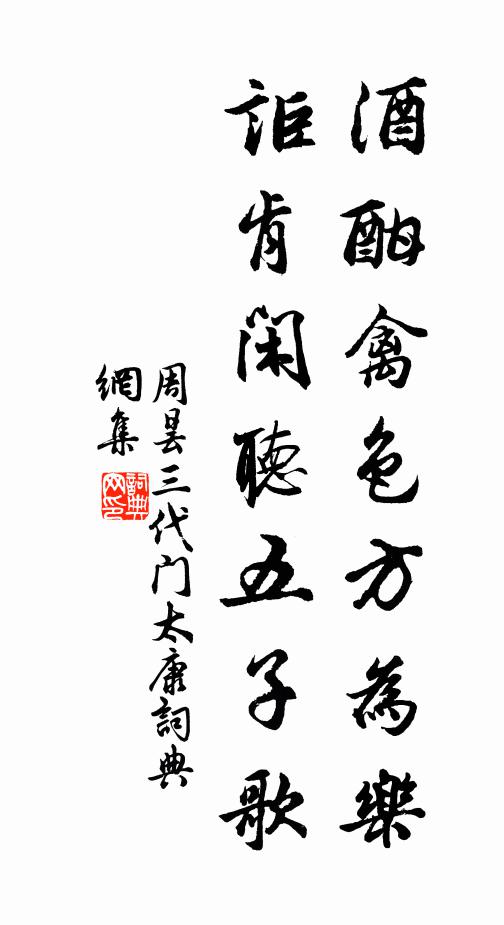 酒酣禽色方為樂
詎肯閑聽五子歌
周曇三代门太康詞典
網集
詞典网印